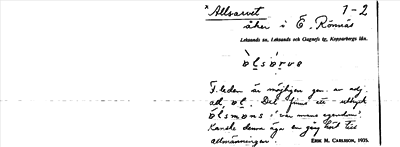 * Allsarvet 1-2
åker i E. Rönnäs
Leksands sn, Leksands och Gagnefs tg, Kopparbergs län.
òlsàrve
F. leden är möjligen gen. av adj.
all, ol. Det finns ett uttryck
ólsmans = "var mans egendom".
Kanske denna äga en gång hört till
allmänningen. ERIK M. CARLSSON, 1935.